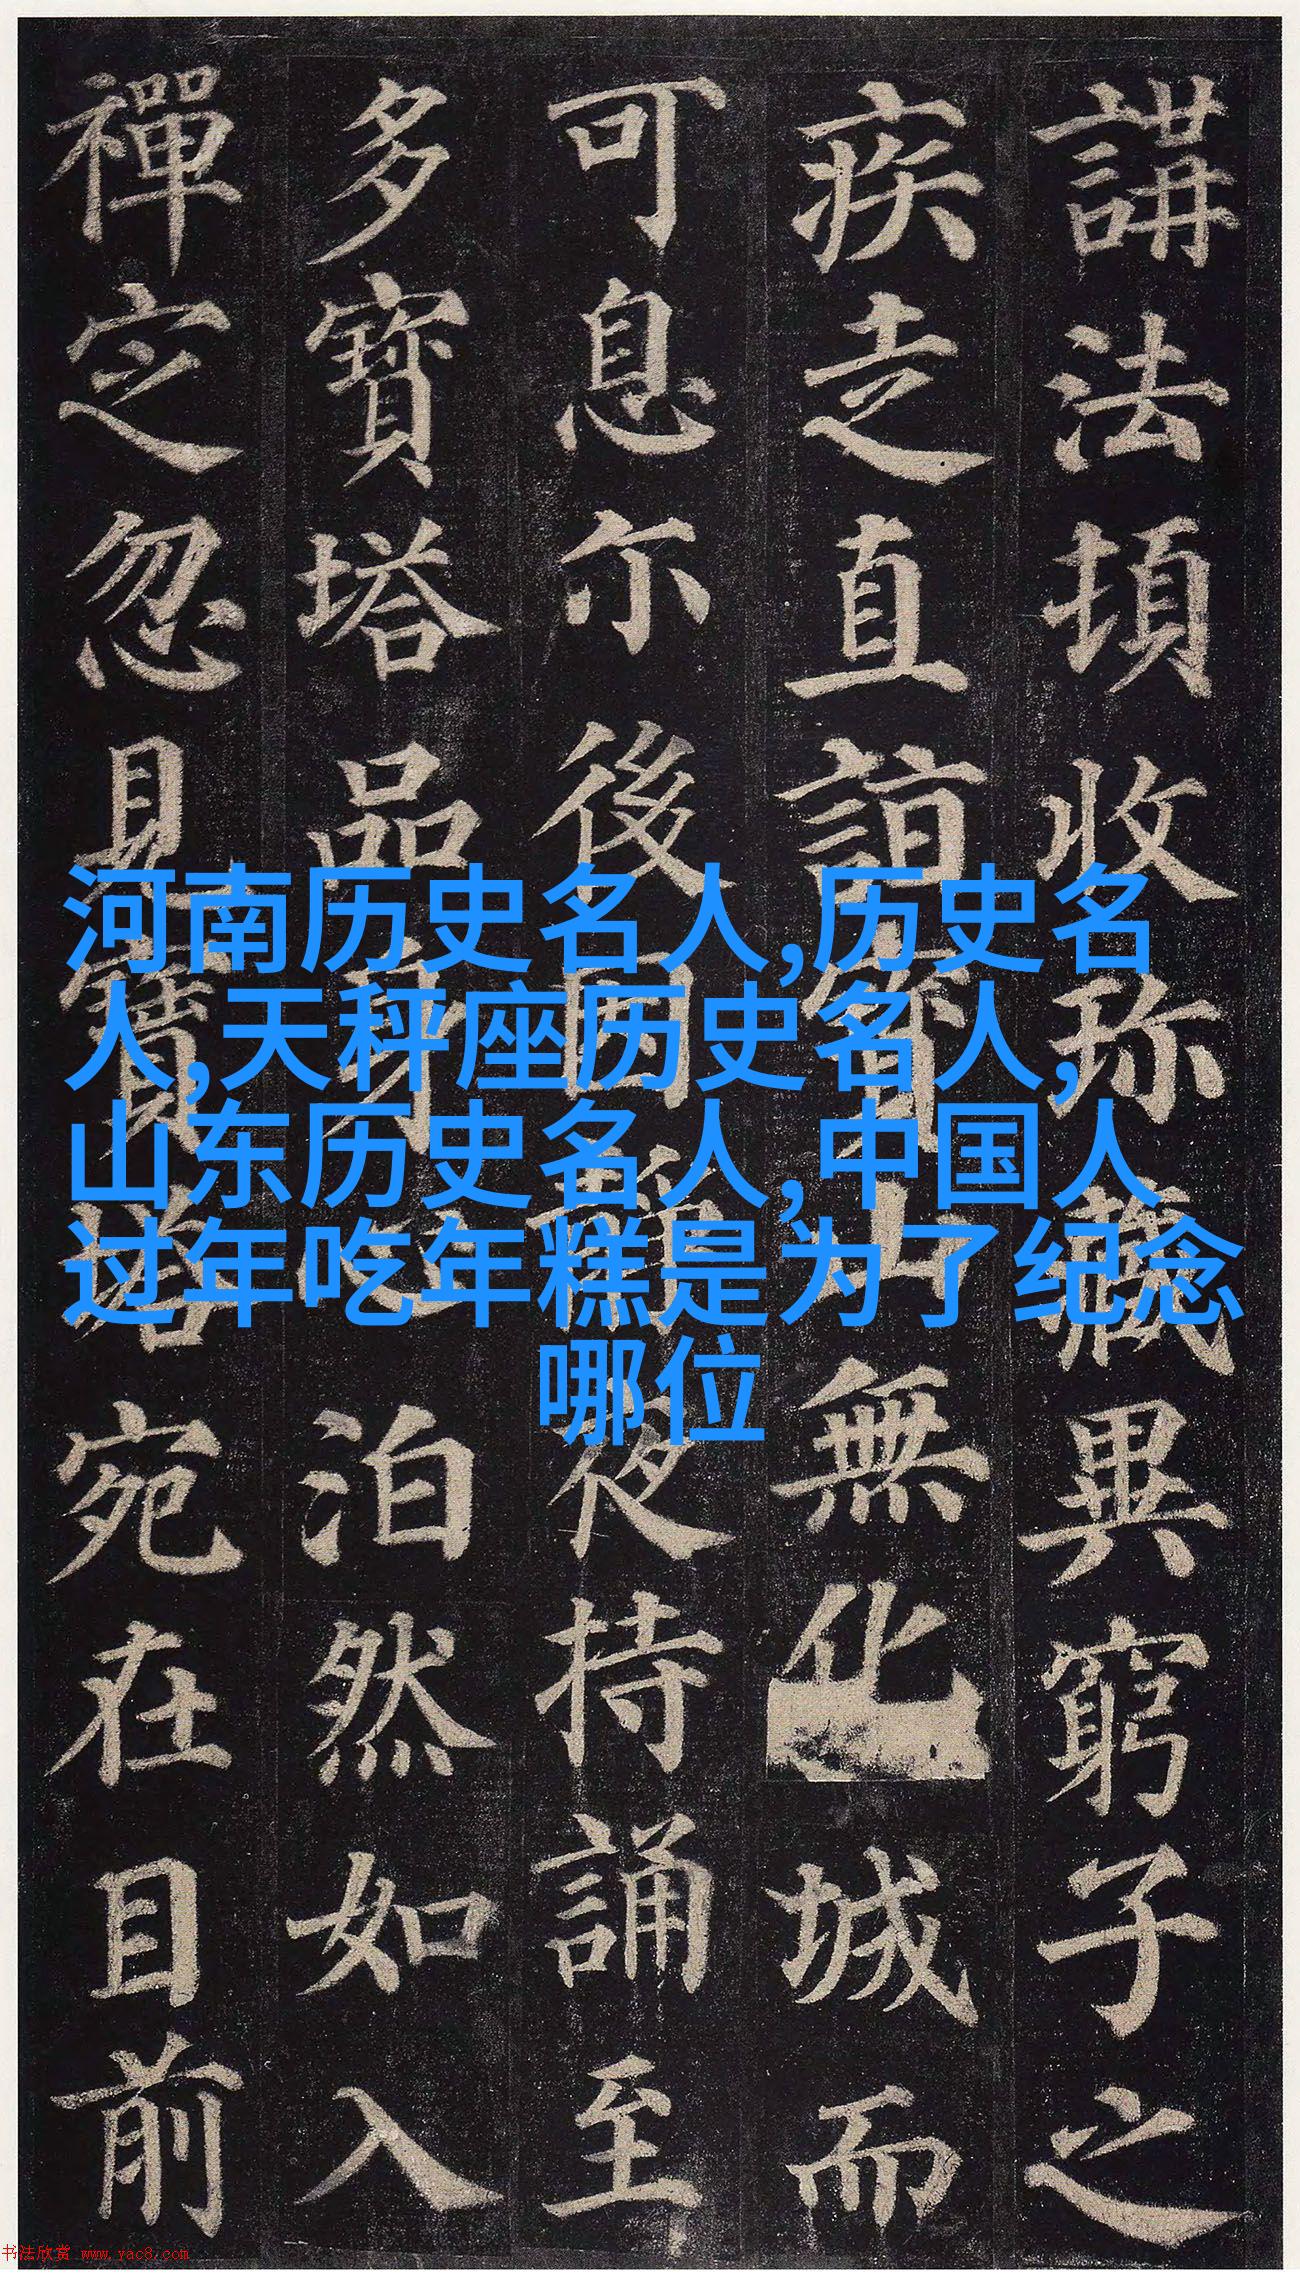 講法頓收珎藏異窮子之
疾走直詣寳山無化城而
可息尓後因靜夜持誦至
多寳塔品身心泊然如入
禪定忽見寳塔宛在目前
河南历史名人,历史名
人,天秤座历史名人,
山东历史名人,中国人
过年吃年糕是为了纪念
哪位
书法欣赏 www.yac8.com